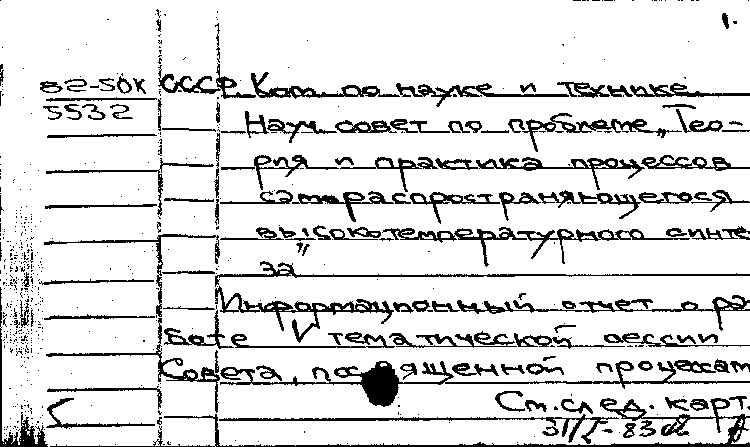 1.
82-50К СССР. Ком. по науке и технике.
5532
Науч. совет по проблеме „Тео-
рия и практика процессов
самораспространяющегося
высокотемпературного синте-
за"
Информационный отчет о ра-
боте V тематической сессии
Совета, посвященной процессам
См. след. карт.